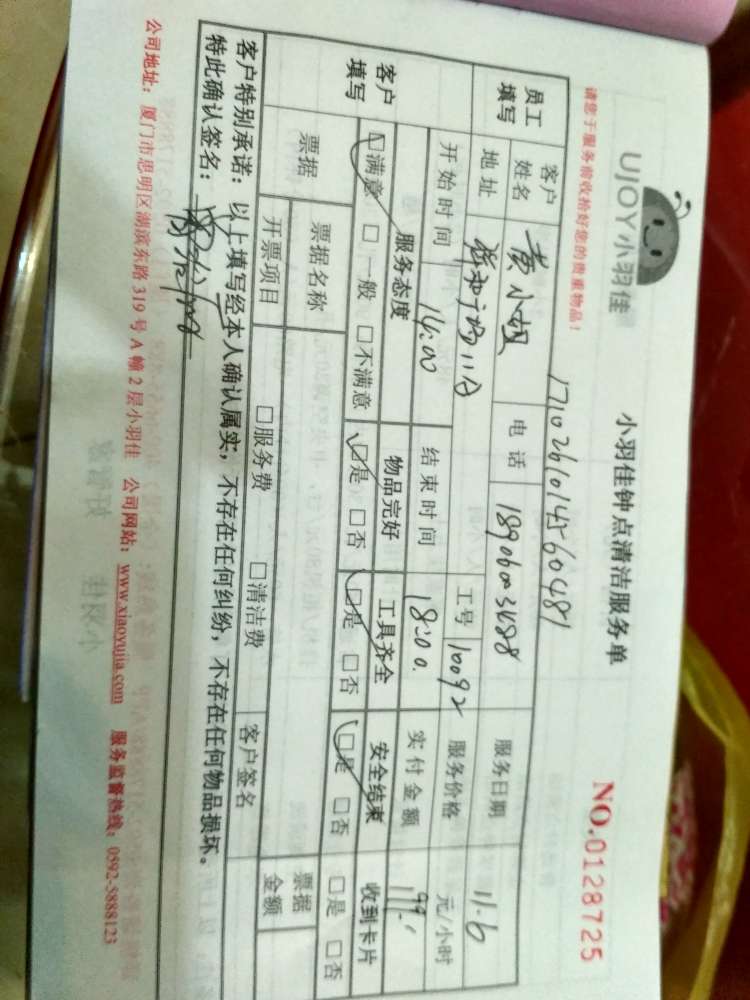 UJOY小羽佳
小羽佳钟点清洁服务单
NO.0128725
请您于服务前收拾好您的贵重物品！
员工填写
客户姓名 黄小姐 电话 服务日期 11.6
地址 工号 10092 服务价格 元/小时
开始时间 14:00 结束时间 18:00 实付金额
客户填写
服务态度 物品完好 工具齐全 安全结束 收到卡片
☑满意 □一般 □不满意 ☑是 □否 ☑是 □否 ☑是 □否 □是 □否
票据 票据名称 票据金额
开票项目 □服务费 □清洁费 客户签名
客户特别承诺：以上填写经本人确认属实，不存在任何纠纷，不存在任何物品损坏。
特此确认签名：
公司地址：厦门市思明区湖滨东路 319 号 A 幢 2 层小羽佳 公司网站：www.xiaoyujia.com 服务监督热线：0592-5888123